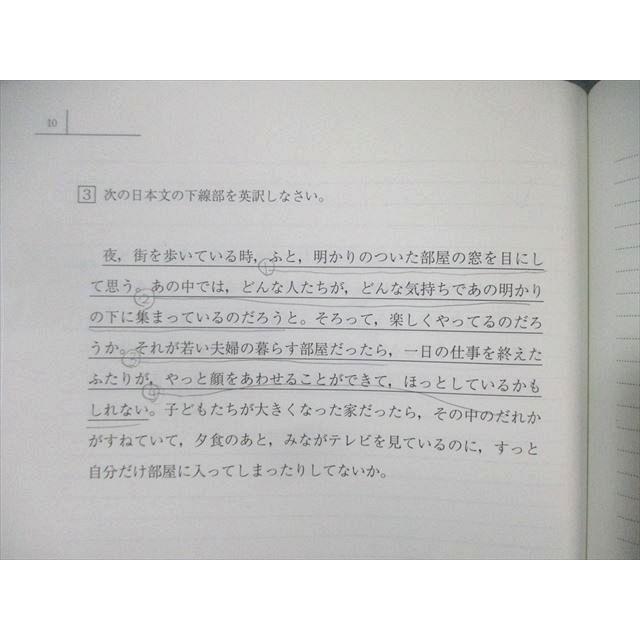 10
3 次の日本文の下線部を英訳しなさい。
夜，街を歩いている時，ふと，明かりのついた部屋の窓を目にし
て思う。あの中では，どんな人たちが，どんな気持ちであの明かり
の下に集まっているのだろうと。そろって，楽しくやってるのだろ
うか。それが若い夫婦の暮らす部屋だったら，一日の仕事を終えた
ふたりが，やっと顔をあわせることができて，ほっとしているかも
しれない。子どもたちが大きくなった家だったら，その中のだれか
がすねていて，夕食のあと，みながテレビを見ているのに，すっと
自分だけ部屋に入ってしまったりしてないか。
① 
② 
③ 
④